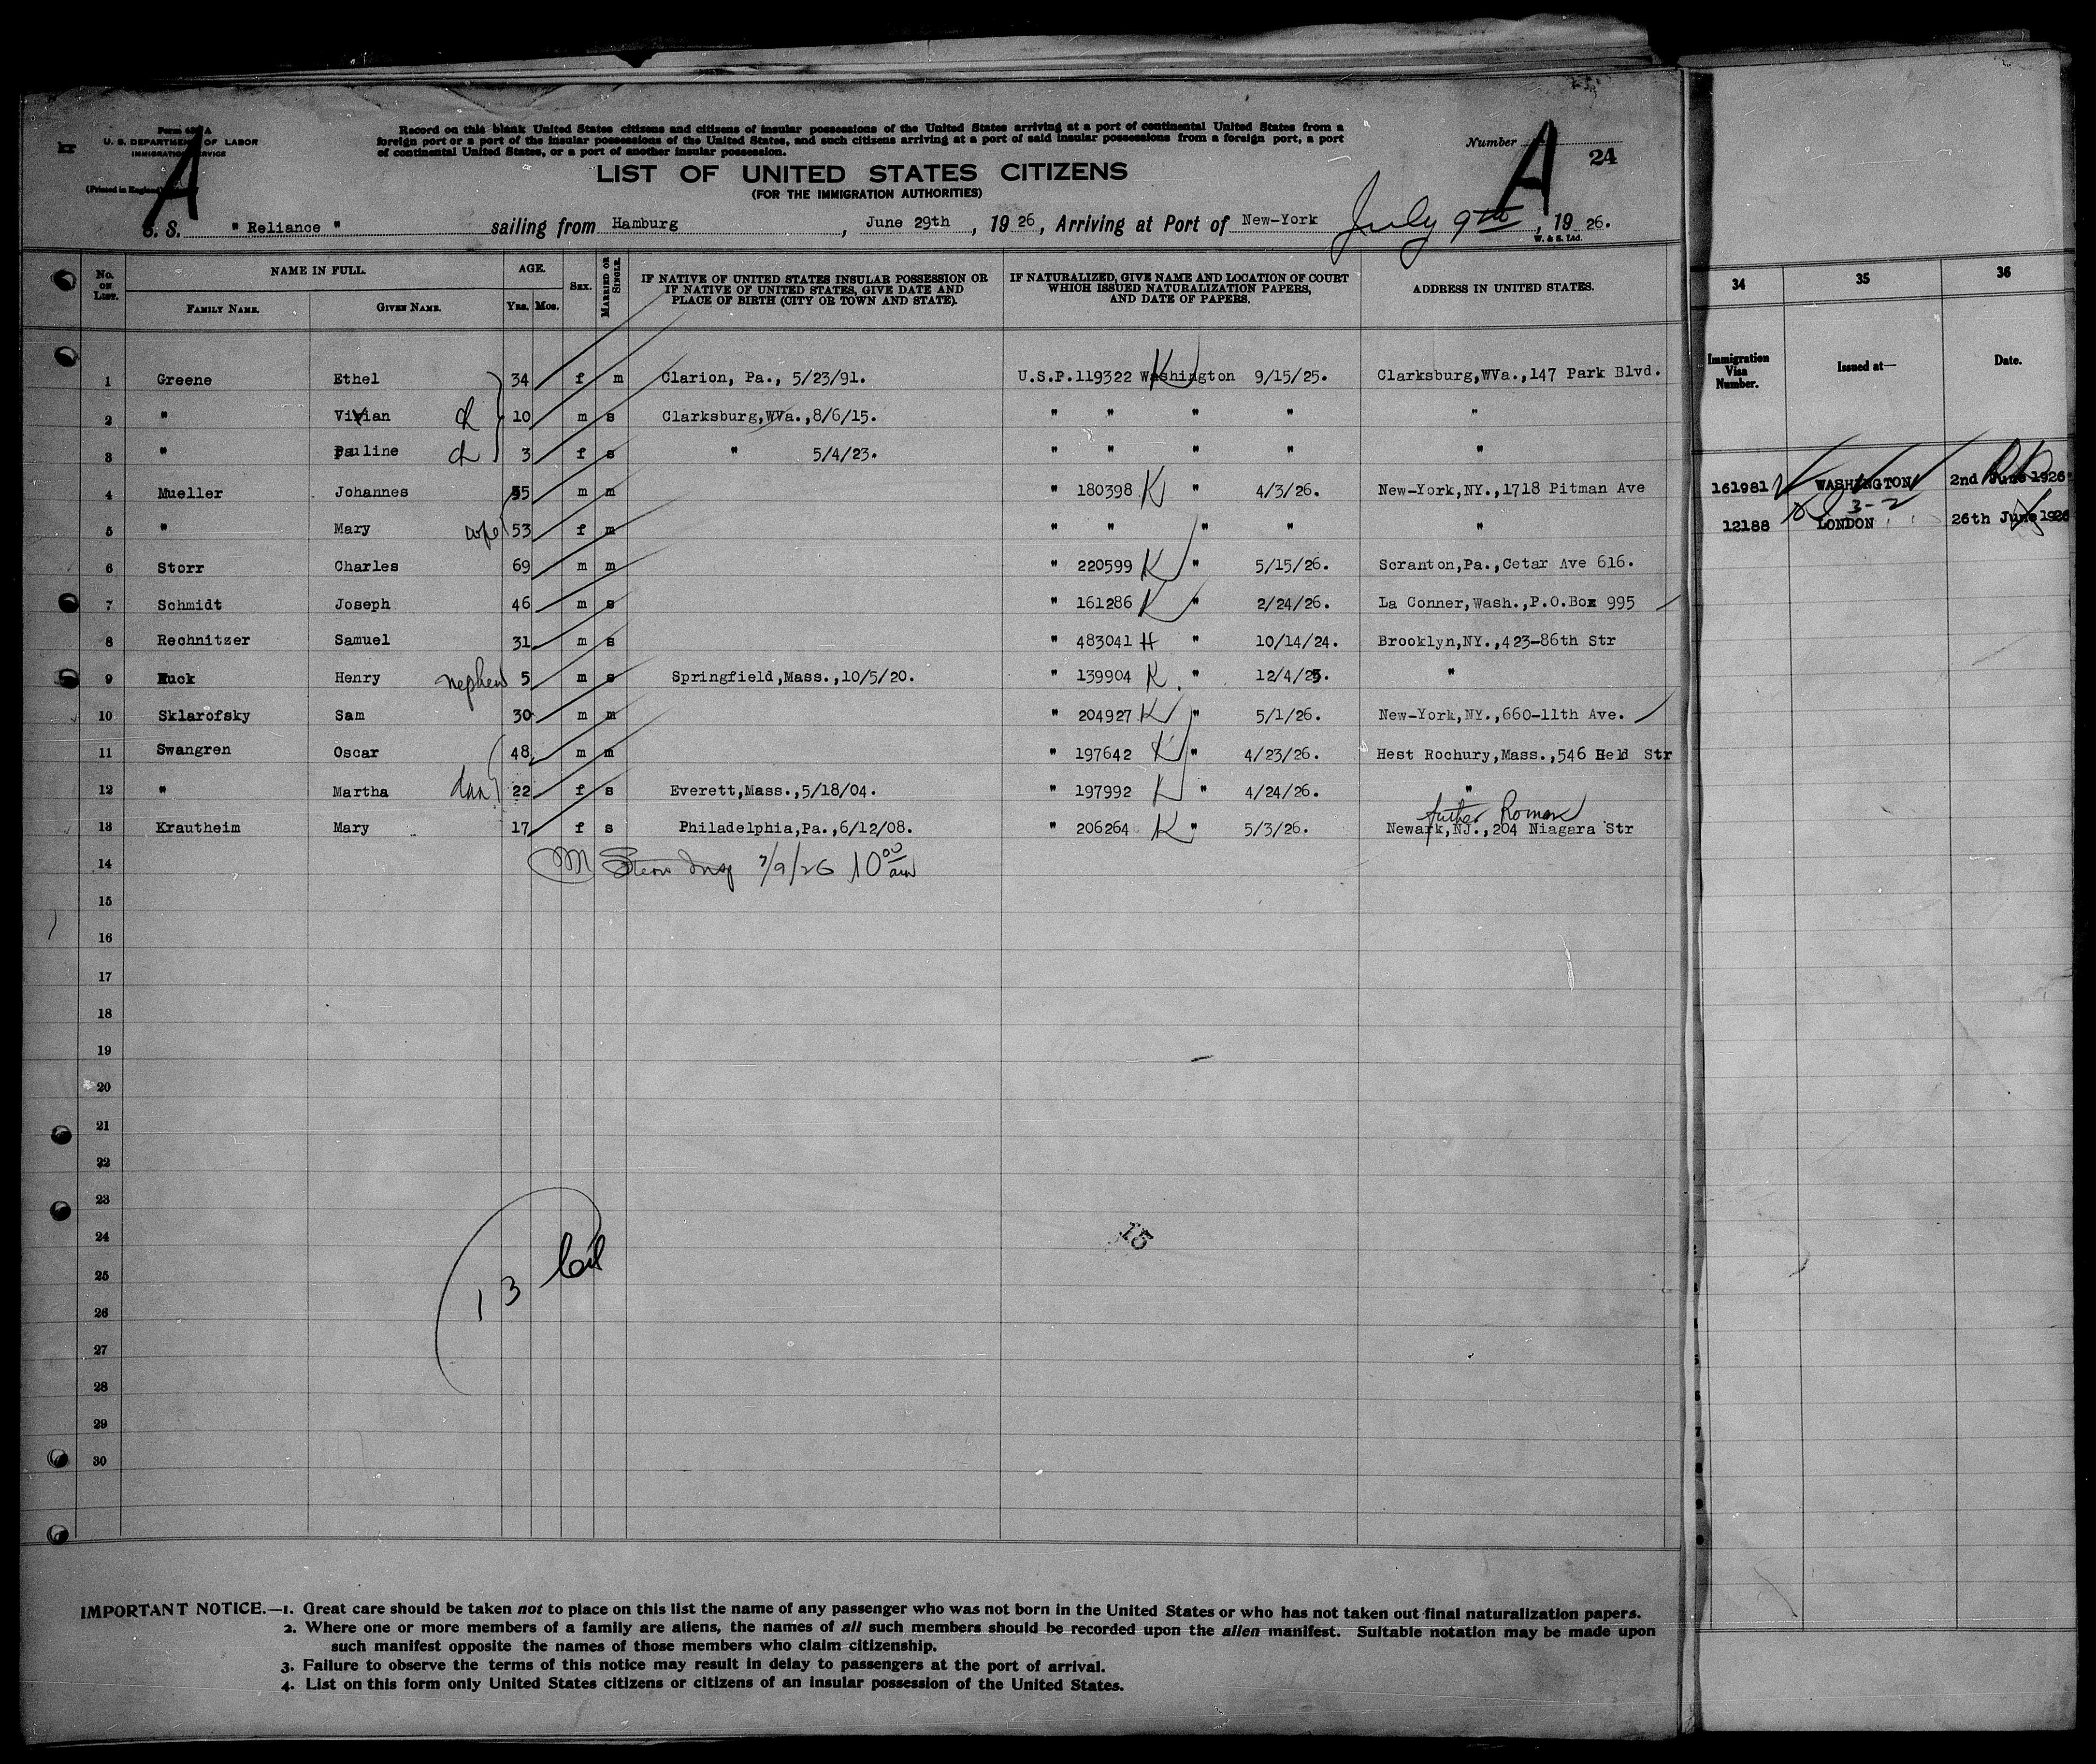 kr
Form 630 A
U. S. DEPARTMENT OF LABOR
IMMIGRATION SERVICE
(Printed in England)
A
Record on this blank United States citizens and citizens of insular possessions of the United States arriving at a port of continental United States from a
foreign port or a port of the insular possessions of the United States, and such citizens arriving at a port of said insular possessions from a foreign port, a port
of continental United States, or a port of another insular possession.
Number A 24
LIST OF UNITED STATES CITIZENS
(FOR THE IMMIGRATION AUTHORITIES)
S. S. " Reliance " sailing from Hamburg, June 29th, 1926, Arriving at Port of New-York July 9th, 1926.
W. & S. Ltd.
No. ON LIST. NAME IN FULL. FAMILY NAME. GIVEN NAME. AGE. Yrs. Mos. SEX. MARRIED OR SINGLE. IF NATIVE OF UNITED STATES INSULAR POSSESSION OR IF NATIVE OF UNITED STATES, GIVE DATE AND PLACE OF BIRTH (CITY OR TOWN AND STATE). IF NATURALIZED, GIVE NAME AND LOCATION OF COURT WHICH ISSUED NATURALIZATION PAPERS, AND DATE OF PAPERS. ADDRESS IN UNITED STATES.
1 Greene Ethel 34 f m Clarion, Pa., 5/23/91. U.S.P.119322 Washington K 9/15/25. Clarksburg,WVa.,147 Park Blvd.
2 " Vivian ch 10 m s Clarksburg,WVa.,8/6/15. " " " " "
3 " Pauline ch 3 f s " 5/4/23. " " " " "
4 Mueller Johannes 55 m m " 180398 K " 4/3/26. New-York,NY.,1718 Pitman Ave
5 " Mary wife 53 f m " " " " "
6 Storr Charles 69 m m " 220599 K " 5/15/26. Scranton,Pa.,Cetar Ave 616.
7 Schmidt Joseph 46 m s " 161286 K " 2/24/26. La Conner,Wash.,P.O.Box 995
8 Rechnitzer Samuel 31 m s " 483041 H " 10/14/24. Brooklyn,NY.,423-86th Str
9 Huck Henry nephew 5 m s Springfield,Mass.,10/5/20. " 139904 K " 12/4/25. "
10 Sklarofsky Sam 30 m m " 204927 K " 5/1/26. New-York,NY.,660-11th Ave.
11 Swangren Oscar 48 m m " 197642 K " 4/23/26. Hest Rochury,Mass.,546 Held Str
12 " Martha dau 22 f s Everett,Mass.,5/18/04. " 197992 K " 4/24/26. "
father Roman
13 Krautheim Mary 17 f s Philadelphia,Pa.,6/12/08. " 206264 K " 5/3/26. Newark,NJ.,204 Niagara Str
14 M Insp 7/9/26 10 00 am
15
16
17
18
19
20
21
22
23
24 15
25
26 13
27
28
29
30
IMPORTANT NOTICE.—1. Great care should be taken not to place on this list the name of any passenger who was not born in the United States or who has not taken out final naturalization papers.
2. Where one or more members of a family are aliens, the names of all such members should be recorded upon the alien manifest. Suitable notation may be made upon
such manifest opposite the names of those members who claim citizenship.
3. Failure to observe the terms of this notice may result in delay to passengers at the port of arrival.
4. List on this form only United States citizens or citizens of an insular possession of the United States.
34 35 36
Immigration Visa Number. Issued at— Date.
161981 WASHINGTON 2nd June 1926
3-2
12188 LONDON 26th June 1926